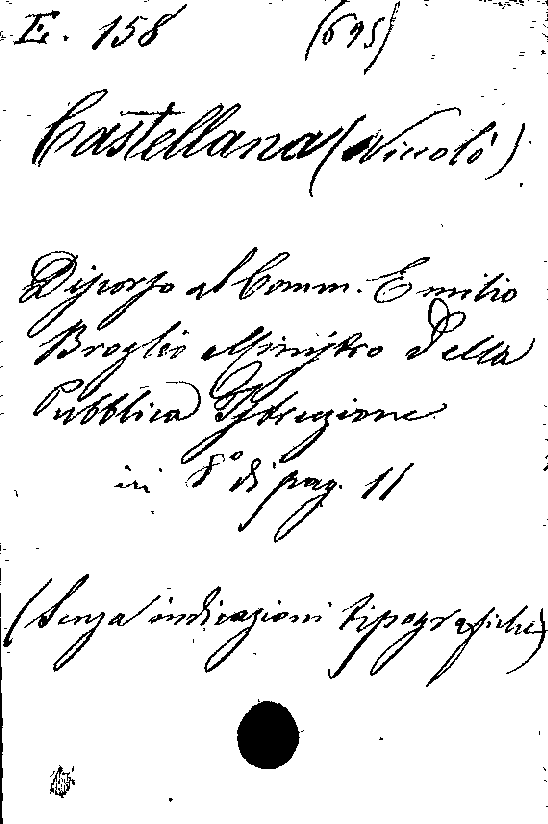 E. 158 (695)
Castellana (Niccolò)
Discorso al Comm. Emilio
Broglio Ministro della
Pubblica Istruzione
in 8° di pag. 11
(Senza indicazioni tipografiche)